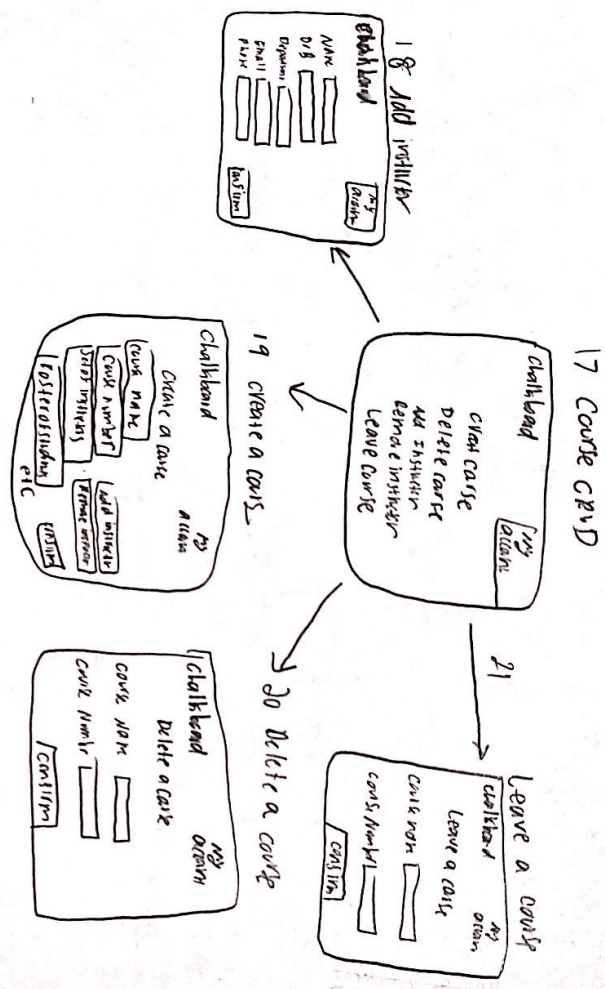 17 Course CRUD
Chalkboard
My
Accont
Creat Carse
Delete carse
Ad Instructer
Remove instructer
Leave Course
18 Add instructer
Chalkboard
My
Accont
Name
DoB
Deparmen
Email
Phone
Confirm
19 create a cours
Chalkboard
My
Account
Create a corse
Course name
Course number
Add instructer
Remove
etc
Confirm
20 Delete a course
Chalkboard
My
Account
Delete a corse
Course Name
Course Number
Confirm
21
Leave a course
Chalkboard
My
Accont
Leave a corse
Course nam
Course Number
Confirm